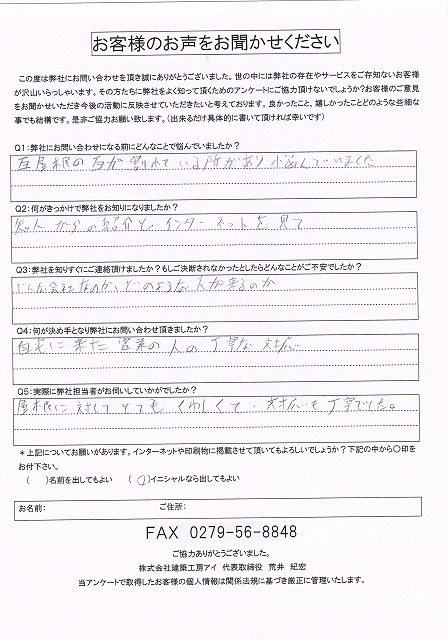 お客様のお声をお聞かせください
この度は弊社にお問い合わせを頂き誠にありがとうございました。世の中には弊社の存在やサービスをご存知ないお客様
が沢山いらっしゃいます。その方たちに弊社をよく知って頂くためのアンケートにご協力頂けないでしょうか?お客様のご意見
をお聞かせいただき今後の活動に反映させていただきたいと考えております。良かったこと、嬉しかったことどのような些細な
事でも結構です。是非ご協力お願い致します。(出来るだけ具体的に書いて頂ければ幸いです)
Q1:弊社にお問い合わせになる前にどんなことで悩んでいましたか?
瓦屋根の瓦が割れている所があり悩んでいました
Q2:何がきっかけで弊社をお知りになりましたか?
知人からの紹介と、インターネットを見て
Q3:弊社を知りすぐにご連絡頂けましたか?もしご決断されなかったとしたらどんなことがご不安でしたか?
どんな会社なのか、どのような人が来るのか
Q4:何が決め手となり弊社にお問い合わせ頂きましたか?
自宅に来た営業の人の丁寧な対応
Q5:実際に弊社担当者がお伺いしていかがでしたか?
屋根に対してとてもくわしくて、対応も丁寧でした。
*上記についてお願いがあります。インターネットや印刷物に掲載させて頂いてもよろしいでしょうか?下記の中から〇印を
お付下さい。
( )名前を出してもよい (〇)イニシャルなら出してもよい
お名前: ご住所:
FAX 0279-56-8848
ご協力ありがとうございました。
株式会社建築工房アイ 代表取締役 荒井 紀宏
当アンケートで取得したお客様の個人情報は関係法規に基づき厳正に管理いたします。